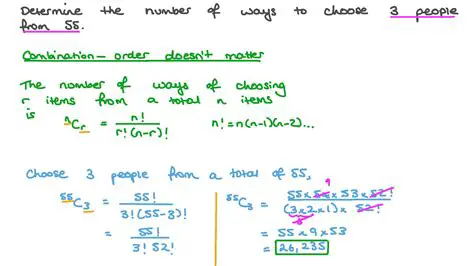 Determine the number of ways to choose 3 people
from 55.
Combination – order doesn't matter
The number of ways of choosing
r items from a total n items
is ⁿCᵣ = n! / r!(n-r)!   n! = n(n-1)(n-2)...
Choose 3 people from a total of 55,
⁵⁵C₃ = 55! / 3!(55-3)!
= 55! / 3! 52!
⁵⁵C₃ = 55 x 54 x 53 x 52! / (3x2x1) x 52!
9
= 55 x 9 x 53
= 26,235